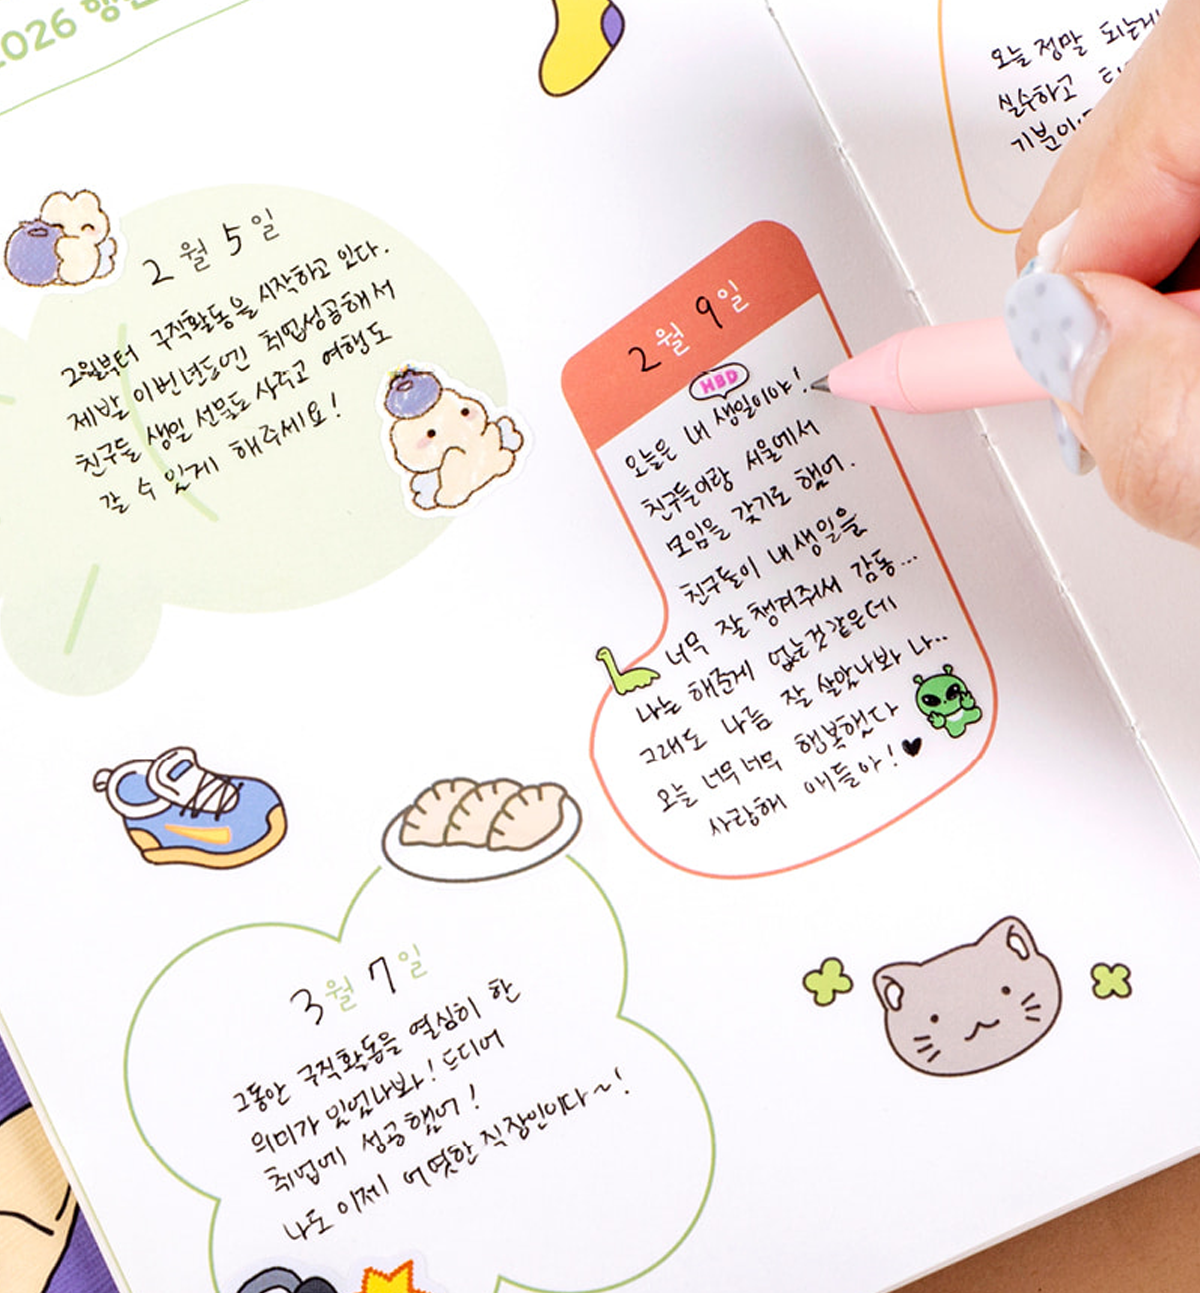 2026 행
2월 5일
2월부터 구직활동을 시작하고 있다.
제발 이번년도엔 취업성공해서
친구들 생일 선물도 사주고 여행도
갈 수 있게 해주세요!
2월 9일
HBD
오늘은 내 생일이야!
친구들이랑 서울에서
모임을 갖기로 했어.
친구들이 내 생일을
너무 잘 챙겨줘서 감동...
나는 해준게 없는것같은데
그래도 나름 잘 살았나봐 나..
오늘 너무너무 행복했다
사랑해 애들아!♥
3월 7일
그동안 구직활동을 열심히 한
의미가 있었나봐! 드디어
취업에 성공했어!
나도 이제 어엿한 직장인이다~!
오늘 정말 되는게
실수하고
기분이